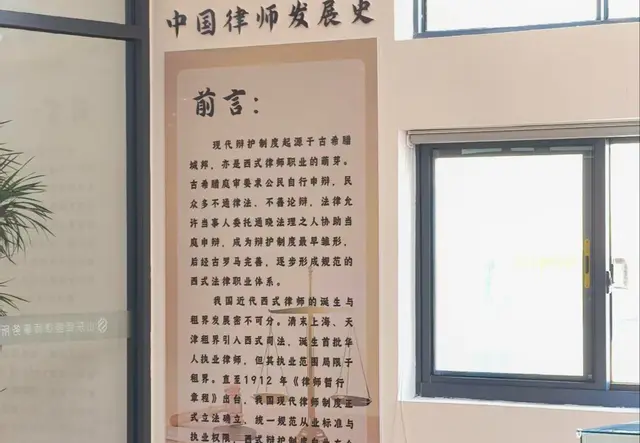 中国律师发展史
前言：
现代辩护制度起源于古希腊
城邦，亦是西式律师职业的萌芽。
古希腊庭审要求公民自行申辩，民
众多不通律法、不善论辩，法律允
许当事人委托通晓法理之人协助当
庭申辩，成为辩护制度最早雏形，
后经古罗马完善，逐步形成规范的
西式法律职业体系。
我国近代西式律师的诞生与
租界发展密不可分。清末上海、天
津租界引入西式司法，诞生首批华
人执业律师，但其执业范围局限于
租界。直至1912 年《律师暂行
章程》出台，我国现代律师制度正
式立法确立，统一规范从业标准与
执业权限，西式辩护制度自此在全